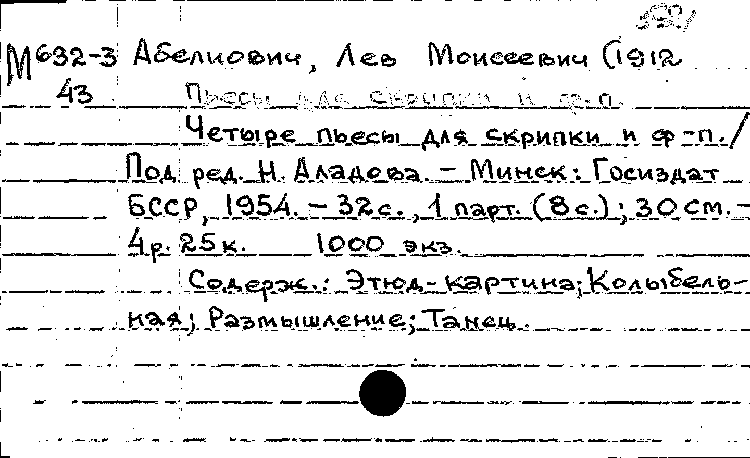 М632-3 Абелиович, Лев Моисеевич (1912
43 Пьесы для скрипки и ф-п.
Четыре пьесы для скрипки и ф-п./
Под ред. Н. Аладова. – Минск: Госиздат
БССР, 1954. – 32с., 1 парт. (8с.); 30см. –
4р. 25к. 1000 экз.
Содерж.: Этюд-картина; Колыбель-
ная; Размышление; Танец.